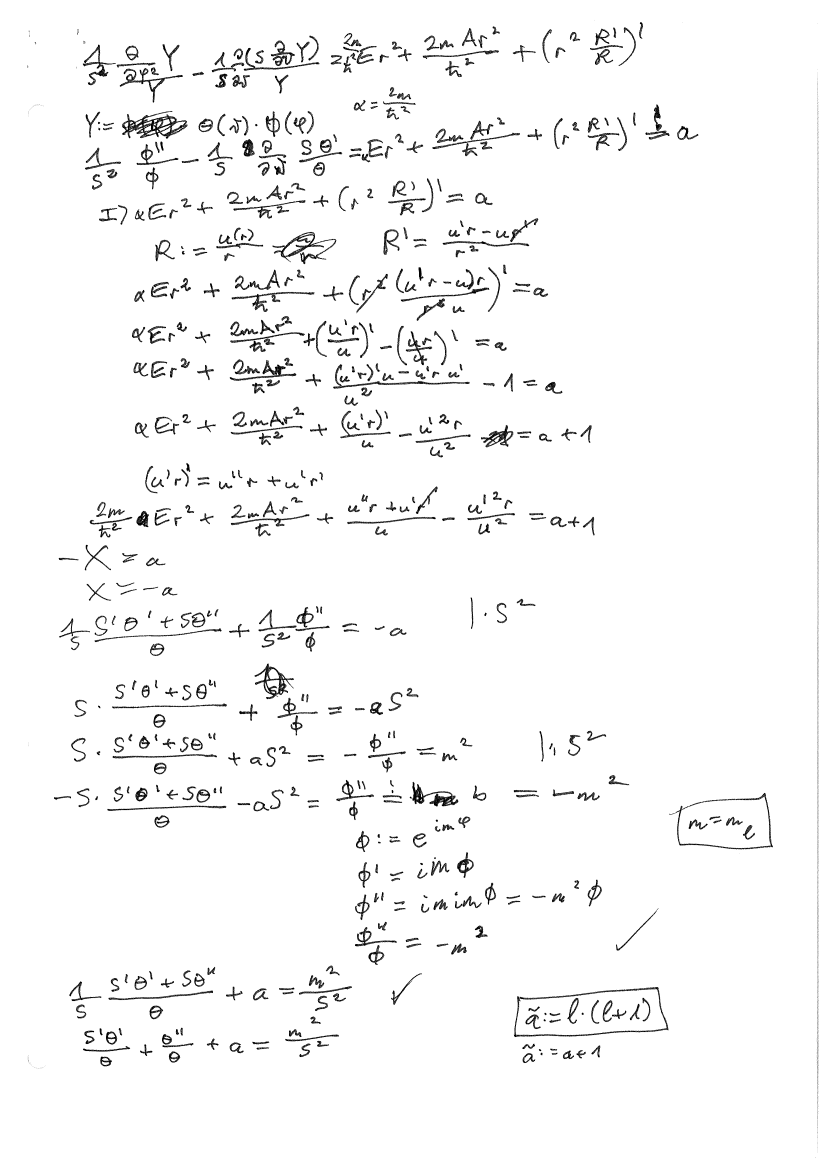 1/S² ∂/∂φ² Y / Y - 1/S ∂/∂ϑ (S ∂/∂ϑ Y) / Y = 2m/ħ² Er² + 2mAr²/ħ² + (r² R'/R)'
α = 2m/ħ²
Y := Θ(ϑ)·ϕ(φ)
1/S² ϕ''/ϕ - 1/S ∂/∂ϑ SΘ'/Θ = αEr² + 2mAr²/ħ² + (r² R'/R)' = a
I) αEr² + 2mAr²/ħ² + (r² R'/R)' = a
R := u(r)/r R' = (u'r - ur')/r²
αEr² + 2mAr²/ħ² + (r² (u'r - u)r / r² u)' = a
αEr² + 2mAr²/ħ² + (u'r/u)' - (ur/u)' = a
αEr² + 2mAr²/ħ² + ((u'r)'u - u'r u')/u² - 1 = a
αEr² + 2mAr²/ħ² + (u'r)'/u - u'²r/u² = a + 1
(u'r)' = u''r + u'r'
2m/ħ² Er² + 2mAr²/ħ² + (u''r + u'r')/u - u'²r/u² = a+1
-X = a
X = -a
1/S (S'Θ' + SΘ'')/Θ + 1/S² ϕ''/ϕ = -a |·S²
S· (S'Θ' + SΘ'')/Θ + ϕ''/ϕ = -aS²
S· (S'Θ' + SΘ'')/Θ + aS² = - ϕ''/ϕ = m² |: S²
-S· (S'Θ' + SΘ'')/Θ - aS² = ϕ''/ϕ = b = -m²
m = mₑ
ϕ := e^(imφ)
ϕ' = imϕ
ϕ'' = imimϕ = -m²ϕ
ϕ''/ϕ = -m² ✓
1/S (S'Θ' + SΘ'')/Θ + a = m²/S² ✓
ã := l·(l+1)
S'Θ'/Θ + Θ''/Θ + a = m²/S²
ã := a+1